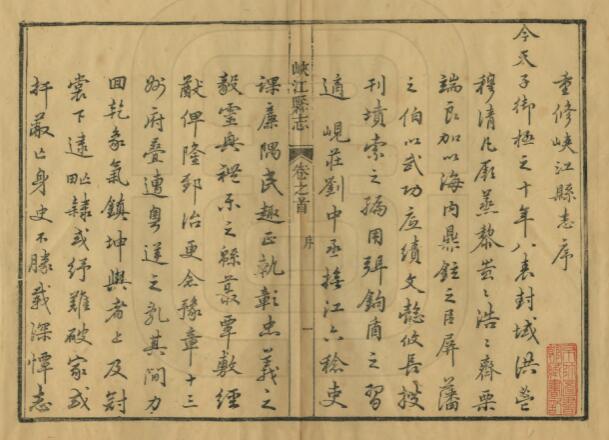 重修峽江縣志序
今天子御極之十年八表封域洪
穆清凡厥蒸黎皆浩浩齊栗
端良加以海內鼎鉉之臣屏藩
之伯以武功底績文懿攸長披
刊墳索之編用弭鉤商之習
適峴莊劉中丞撫江六稔吏
峽江縣志
卷之首
序
一
課廉隅民趣正執彰忠義之
靈與禮示之縣蕞覃敷經
猷俾隆郅治更念豫章十三
州府疊遭粵逆之亂其間力
回乾象氣鎮坤輿者上及冠
裳下逮隸或紓難破家或
扞敵亡身史不勝載深憚志